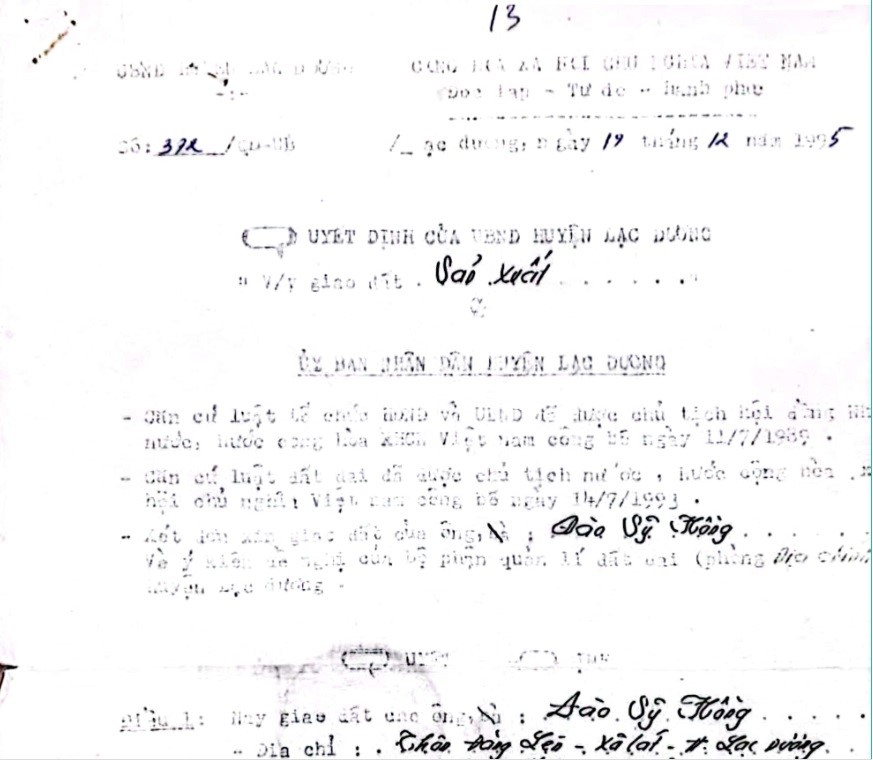 13
UBND HUYỆN LẠC DƯƠNG
CỘNG HÒA XÃ HỘI CHỦ NGHĨA VIỆT NAM
Độc lập - Tự do - Hạnh phúc
Số: 372 /QĐ-UB
Lạc dương, ngày 19 tháng 12 năm 1995
QUYẾT ĐỊNH CỦA UBND HUYỆN LẠC DƯƠNG
" V/v giao đất . Sản xuất . . . . . . "
ỦY BAN NHÂN DÂN HUYỆN LẠC DƯƠNG
- Căn cứ luật tổ chức HĐND và UBND đã được chủ tịch hội đồng Nh
nước, nước cộng hòa XHCN Việt nam công bố ngày 11/7/1989 .
- Căn cứ luật đất đai đã được chủ tịch nước , nước cộng hòa x
hội chủ nghĩa Việt nam công bố ngày 14/7/1993 .
- Xét đơn xin giao đất của ông, bà : Đào Sỹ Hồng . . . . .
Và ý kiến đề nghị của bộ phận quản lí đất đai (phòng Địa chính
huyện Lạc dương -
QUYẾT ĐỊNH
Điều 1: Nay giao đất cho ông, bà : Đào Sỹ Hồng . . . . .
- Địa chỉ : . Thôn Đảng - Xã Lát - H. Lạc Dương